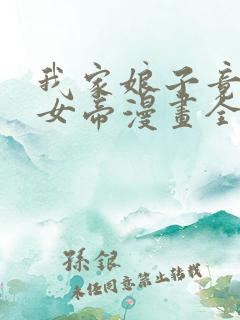 我家娘子竟
女帝漫畫全
孫銀
未经同意禁止转载